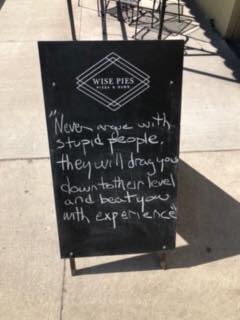 WISE PIES
PIZZA & SUBS
"Never argue with
stupid people.
they will drag you
down to their level
and beat you
with experience"